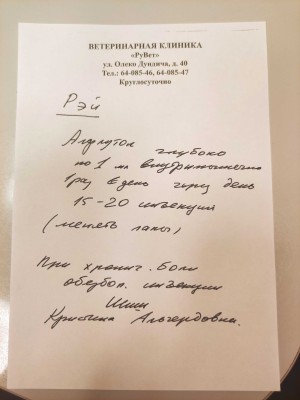 ВЕТЕРИНАРНАЯ КЛИНИКА
«РуВет»
ул. Олеко Дундича, д. 40
Тел.: 64-085-46, 64-085-47
Круглосуточно
Рэй
Алфлутоп глубоко
по 1 мл внутримышечно
1 раз в день через день
15-20 инъекций
(менять лапы)
При хронич. боли
обезбол. инъекции
Кристина Альгердовна.